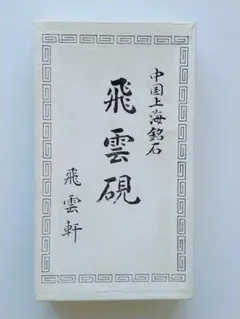 中国上海銘石
飛雲硯
飛雲軒